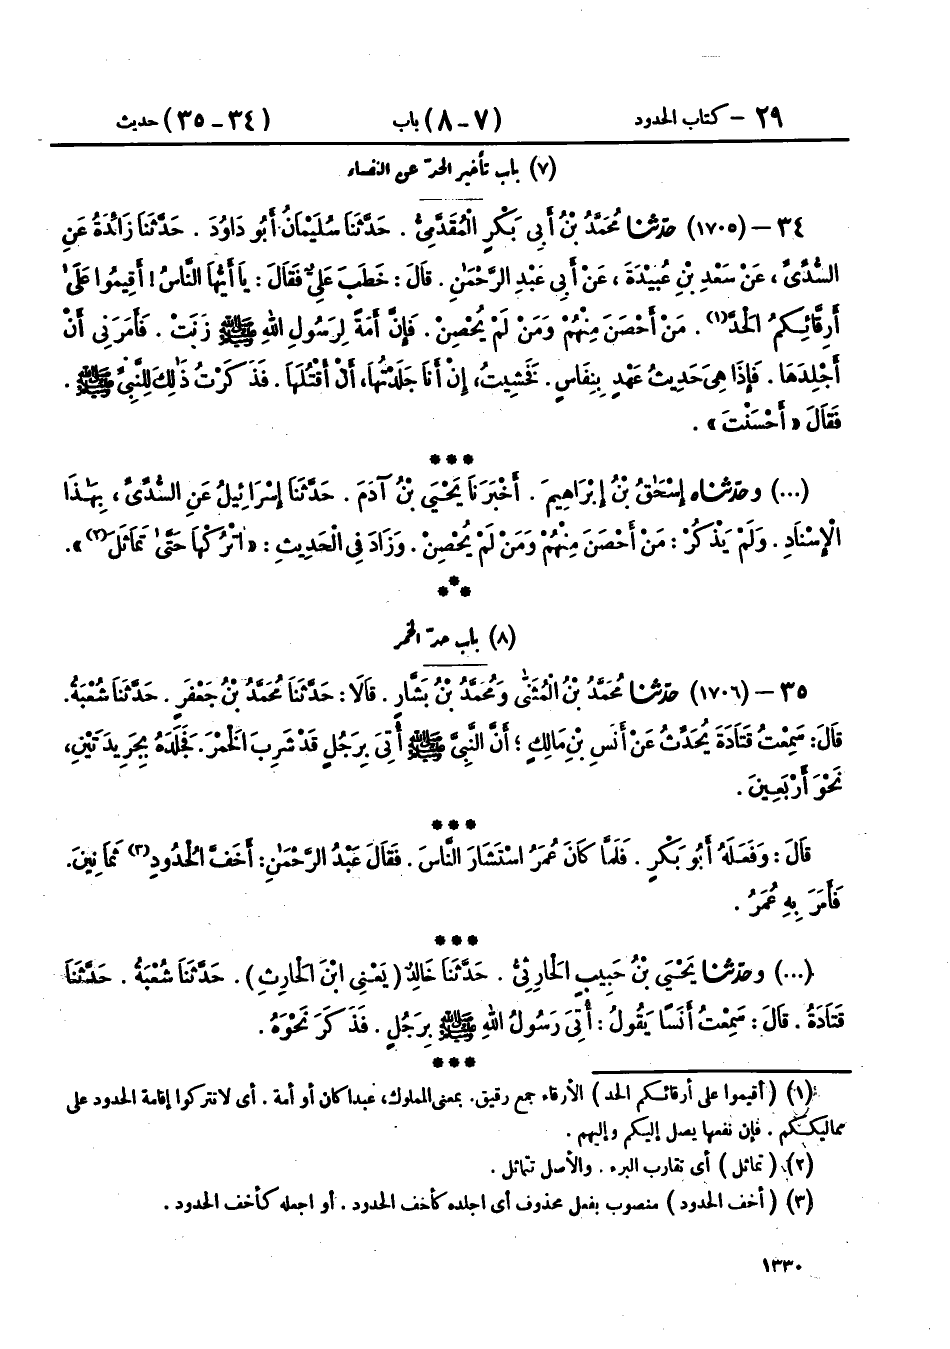 ٢٩ - كتاب الحدود (٧ - ٨) باب (٣٤ - ٣٥) حديث
(٧) باب تأخير الحدّ عن النفساء
٣٤ - (١٧٠٥) حدّثنا مُحَمَّدُ بْنُ أَبِي بَكْرٍ الْمُقَدَّمِىُّ . حَدَّثَنَا سُلَيْمَانُ أَبُو دَاوُدَ . حَدَّثَنَا زَائِدَةُ عَنِ
السُّدِّىِّ ، عَنْ سَعْدِ بْنِ عُبَيْدَةَ ، عَنْ أَبِي عَبْدِ الرَّحْمَٰنِ . قَالَ : خَطَبَ عَلِىٌّ فَقَالَ : يَا أَيُّهَا النَّاسُ ! أَقِيمُوا عَلَىٰ
أَرِقَّائِكُمُ الْحَدَّ(١) . مَنْ أَحْصَنَ مِنْهُمْ وَمَنْ لَمْ يُحْصِنْ . فَإِنَّ أَمَةً لِرَسُولِ اللهِ ﷺ زَنَتْ . فَأَمَرَنِى أَنْ
أَجْلِدَهَا . فَإِذَا هِىَ حَدِيثُ عَهْدٍ بِنِفَاسٍ . فَخَشِيتُ، إِنْ أَنَا جَلَدْتُهَا، أَنْ أَقْتُلَهَا . فَذَكَرْتُ ذَٰلِكَ لِلنَّبِىِّ ﷺ .
فَقَالَ « أَحْسَنْتَ » .
***
(...) وحدّثناه إِسْحَٰقُ بْنُ إِبْرَاهِيمَ . أَخْبَرَنَا يَحْيَىٰ بْنُ آدَمَ . حَدَّثَنَا إِسْرَائِيلُ عَنِ السُّدِّىِّ ، بِهَٰذَا
الْإِسْنَادِ . وَلَمْ يَذْكُرْ : مَنْ أَحْصَنَ مِنْهُمْ وَمَنْ لَمْ يُحْصِنْ . وَزَادَ فِى الْحَدِيثِ : « اتْرُكْهَا حَتَّىٰ تَمَاثَلَ(٢) ».
***
(٨) باب حدّ الخمر
٣٥ - (١٧٠٦) حدّثنا مُحَمَّدُ بْنُ الْمُثَنَّىٰ وَمُحَمَّدُ بْنُ بَشَّارٍ . قَالَا : حَدَّثَنَا مُحَمَّدُ بْنُ جَعْفَرٍ . حَدَّثَنَا شُعْبَةُ.
قَالَ: سَمِعْتُ قَتَادَةَ يُحَدِّثُ عَنْ أَنَسِ بْنِ مَالِكٍ ؛ أَنَّ النَّبِىَّ ﷺ أُتِىَ بِرَجُلٍ قَدْ شَرِبَ الْخَمْرَ. فَجَلَدَهُ بِجَرِيدَتَيْنِ،
نَحْوَ أَرْبَعِينَ .
***
قَالَ : وَفَعَلَهُ أَبُو بَكْرٍ . فَلَمَّا كَانَ عُمَرُ اسْتَشَارَ النَّاسَ . فَقَالَ عَبْدُ الرَّحْمَٰنِ: أَخَفَّ الْحُدُودِ(٣) ثَمَانِينَ.
فَأَمَرَ بِهِ عُمَرُ .
***
(...) وحدّثنا يَحْيَىٰ بْنُ حَبِيبٍ الْحَارِثِىُّ . حَدَّثَنَا خَالِدٌ (يَعْنِى ابْنَ الْحَارِثِ) . حَدَّثَنَا شُعْبَةُ . حَدَّثَنَا
قَتَادَةُ . قَالَ : سَمِعْتُ أَنَسًا يَقُولُ : أُتِىَ رَسُولُ اللهِ ﷺ بِرَجُلٍ . فَذَكَرَ نَحْوَهُ .
***
(١) (أقيموا على أرقائكم الحد) الأرقاء جمع رقيق. بمعنى المملوك، عبدا كان أو أمة . أى لا تتركوا إقامة الحدود على
مماليككم . فإن نفعها يصل إليكم وإليهم .
(٢) (تماثل) أى تقارب البرء . والأصل تتماثل .
(٣) (أخف الحدود) منصوب بفعل محذوف أى اجلده كأخف الحدود . أو اجعله كأخف الحدود .
١٣٣٠